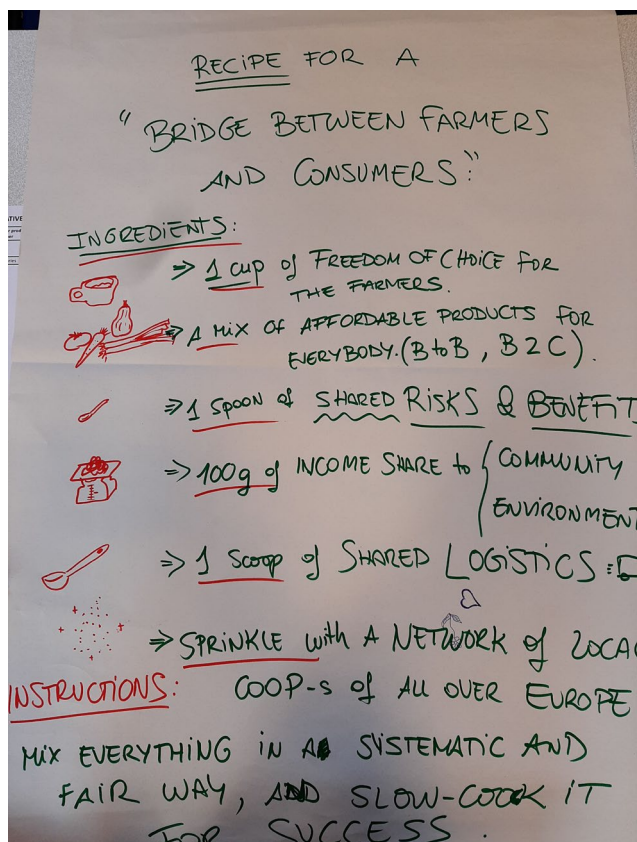 RECIPE FOR A
"BRIDGE BETWEEN FARMERS
AND CONSUMERS:"
INGREDIENTS:
⇒ 1 cup of FREEDOM OF CHOICE FOR
THE FARMERS.
⇒ A Mix OF AFFORDABLE PRODUCTS FOR
EVERYBODY. (B to B, B 2 C).
⇒ 1 Spoon of SHARED RISKS & BENEFIT
⇒ 100g of INCOME SHARE to { COMMUNITY
ENVIRONMENT
⇒ 1 Scoop of SHARED LOGISTICS:
⇒ SPRINKLE with A NETWORK of LOCA
COOP-s of ALL OVER EUROPE
INSTRUCTIONS:
MIX EVERYTHING IN A SYSTEMATIC AND
FAIR WAY, AND SLOW-COOK IT
FOR SUCCESS.
ATIVE